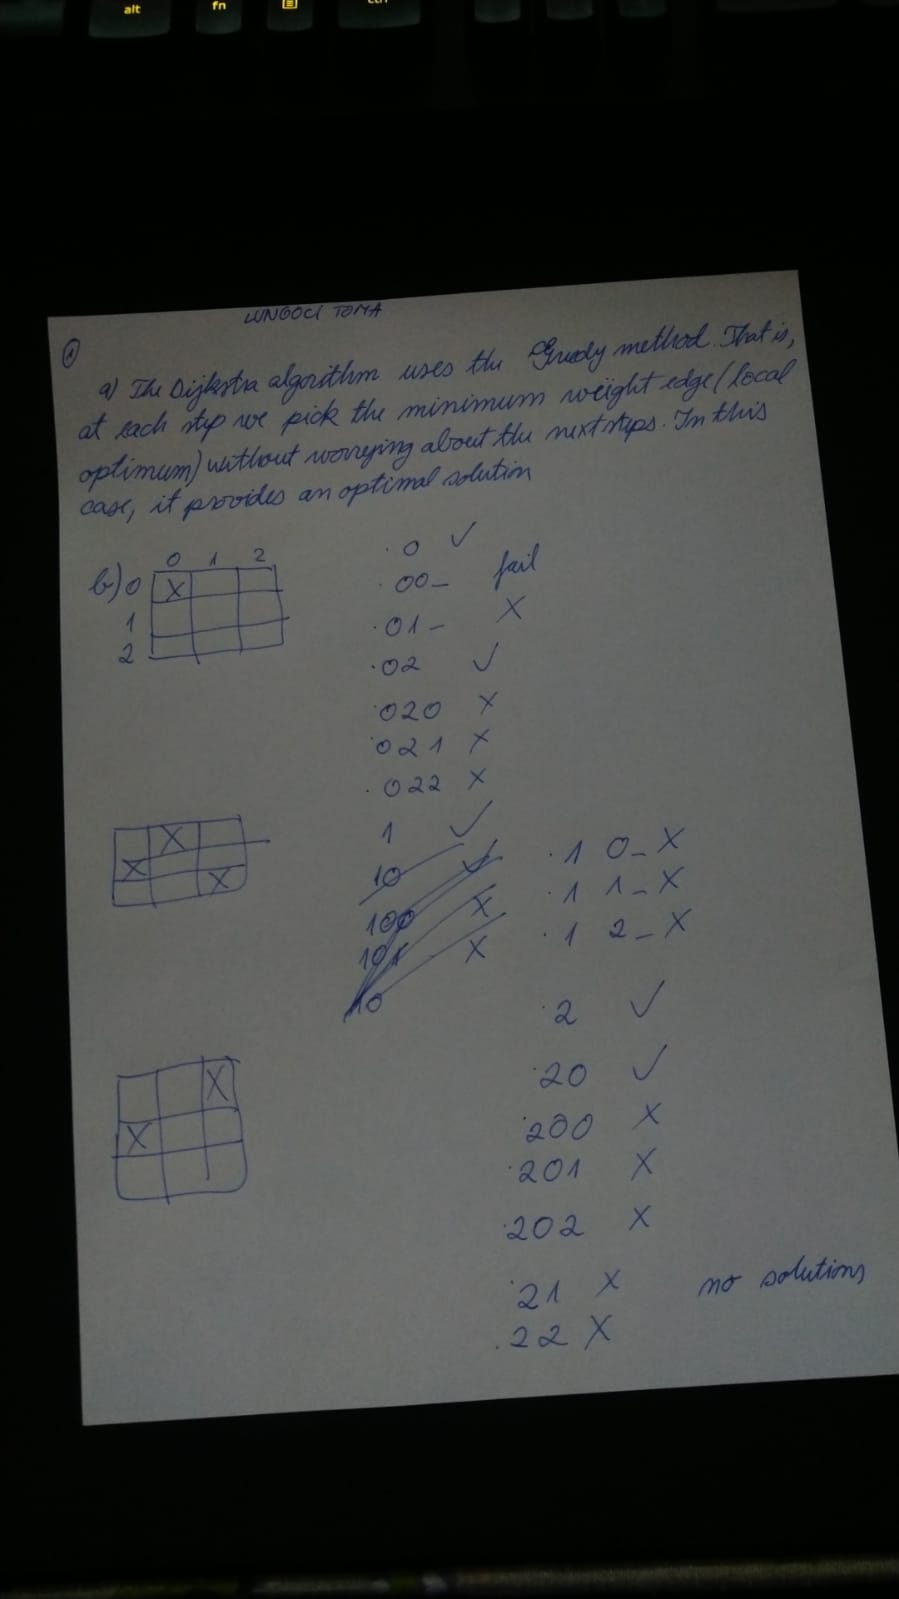 alt fn
LUNGOCI TOMA
1
a) The Dijkstra algorithm uses the Greedy method. That is,
at each step we pick the minimum weight edge (local
optimum) without worrying about the next steps. In this
case, it provides an optimal solution
b) 0 1 2
0 X
1
2
. 0 ✓
. 00_ fail
. 01_ X
. 02 ✓
. 020 X
. 021 X
. 022 X
X
X
X
1 ✓
10 ✓
100 X
101 X
10
. 1 0_ X
. 1 1_ X
. 1 2_ X
X
X
. 2 ✓
. 20 ✓
. 200 X
. 201 X
. 202 X
. 21 X no solutions
. 22 X